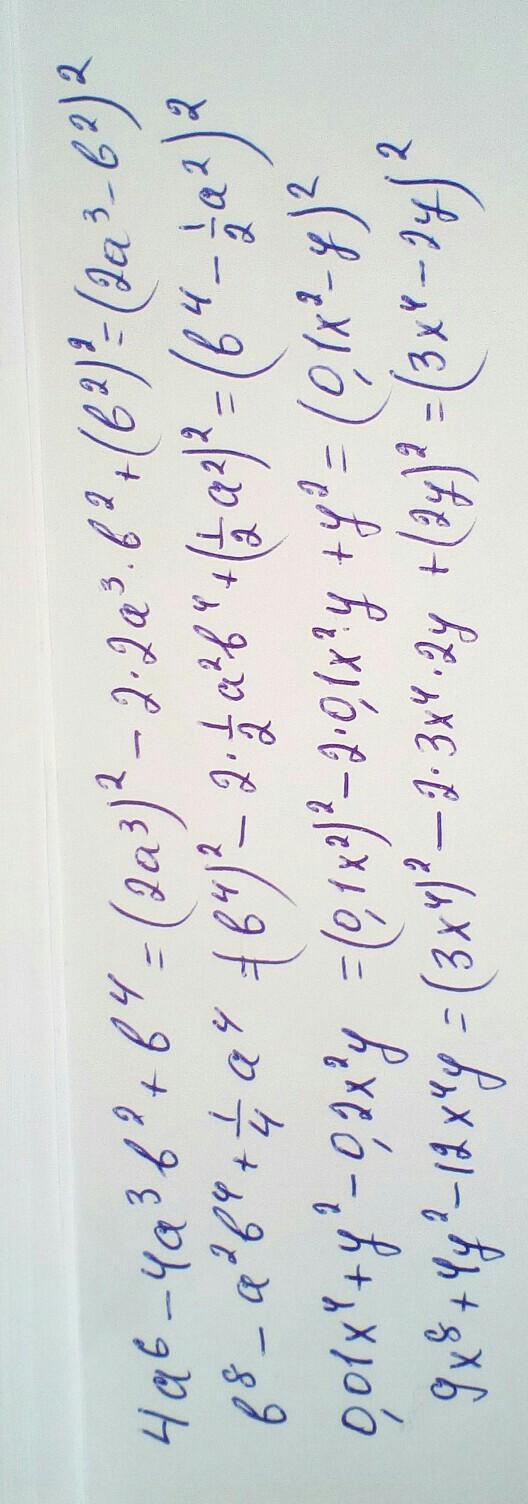 4a⁶ - 4a³b² + b⁴ = (2a³)² - 2·2a³·b² + (b²)² = (2a³ - b²)²
b⁸ - a²b⁴ + 1/4 a⁴ = (b⁴)² - 2·1/2 a²b⁴ + (1/2 a²)² = (b⁴ - 1/2 a²)²
0,01x⁴ + y² - 0,2x²y = (0,1x²)² - 2·0,1x²·y + y² = (0,1x² - y)²
9x⁸ + 4y² - 12x⁴y = (3x⁴)² - 2·3x⁴·2y + (2y)² = (3x⁴ - 2y)²